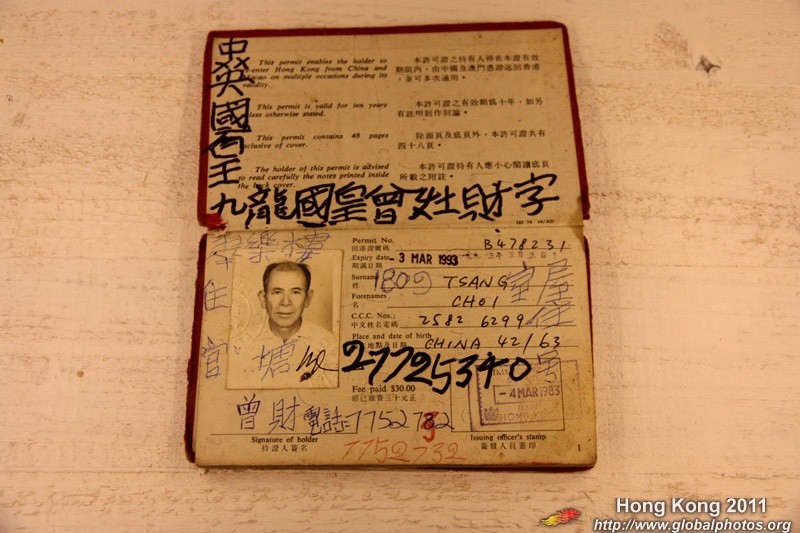 中英國國王
This permit enables the holder to
re-enter Hong Kong from China and
Macao on multiple occasions during its
validity.
本許可證之持有人得在本證有效
期限內，由中國及澳門憑證返回香港
，並可多次適用。
This permit is valid for ten years
unless otherwise stated.
本許可證之有效期爲十年，如另
有註明則作別論。
This permit contains 48 pages
exclusive of cover.
除面頁及底頁外，本許可證共有
四十八頁。
The holder of this permit is advised
to read carefully the notes printed inside
the back cover.
本許可證持有人應小心閱讀底頁
所載之附註。
九龍國皇曾灶財字
樂樓
住
官塘
Permit No. B478231
回港證號碼
Expiry date - 3 MAR 1993
期滿日期
Surname TSANG
姓
1809 室 屋
Forenames CHOI
名
C.C.C. Nos.: 2582 6299
中文姓名電碼
Place and date of birth
CHINA 42/63
27725340 号
Fee paid $30.00
經已繳費三十元正
- 4 MAR 1983
HONG KONG
曾財 電話:7752732
7752732
Signature of holder
持證人簽名
Issuing officer's stamp
簽發人員蓋印
1
Hong Kong 2011
http://www.globalphotos.org